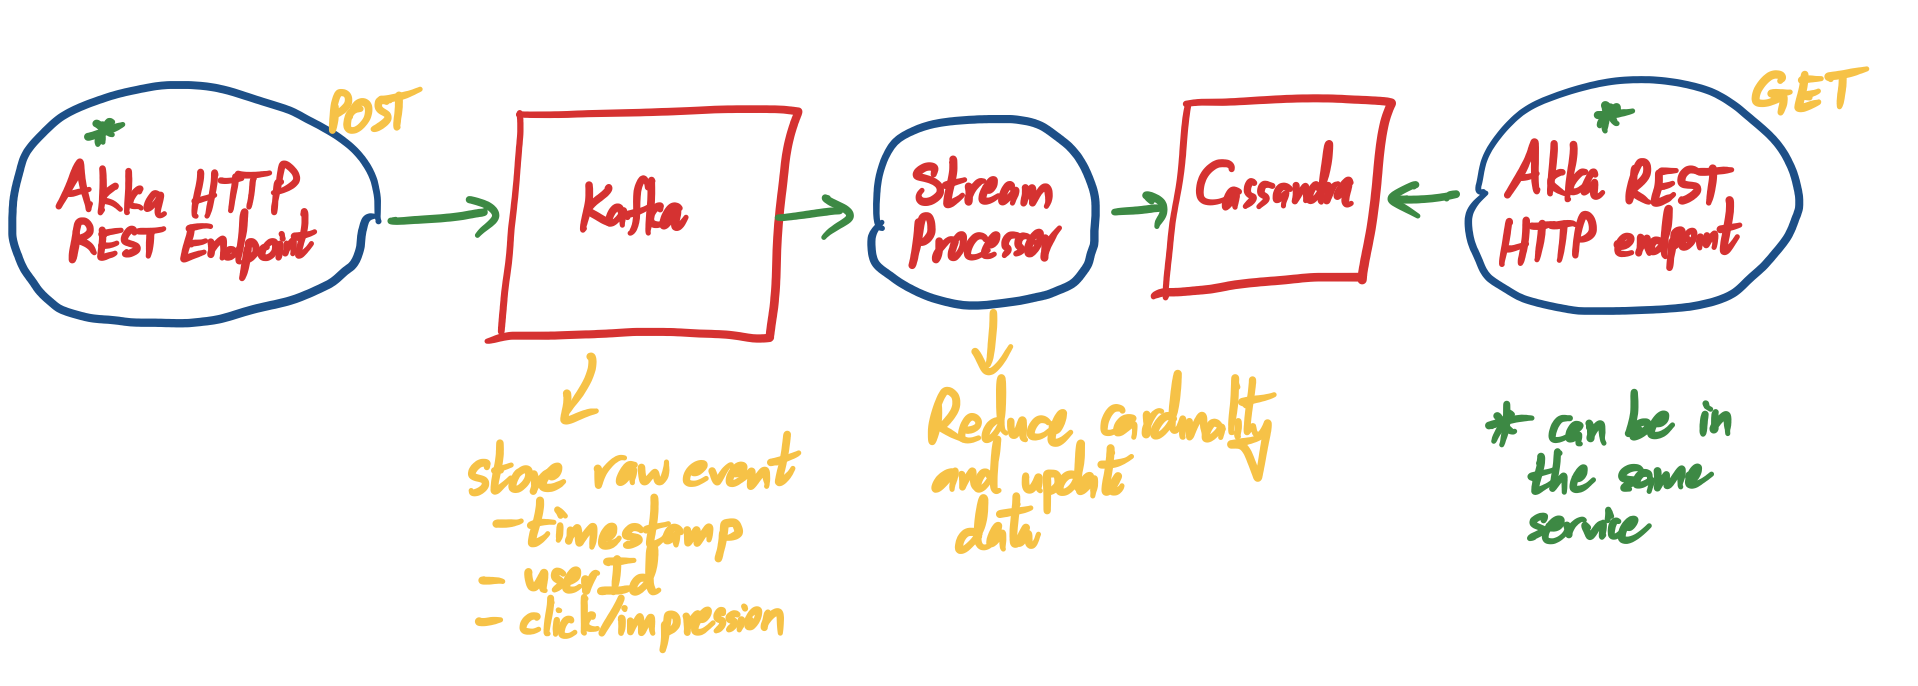 POST
*
Akka HTTP
REST Endpoint
Kafka
Stream
Processor
Cassandra
GET
*
Akka REST
HTTP endpoint
store raw event
- timestamp
- userId
- click/impression
Reduce cardinality
and update
data
* can be in
the same
service